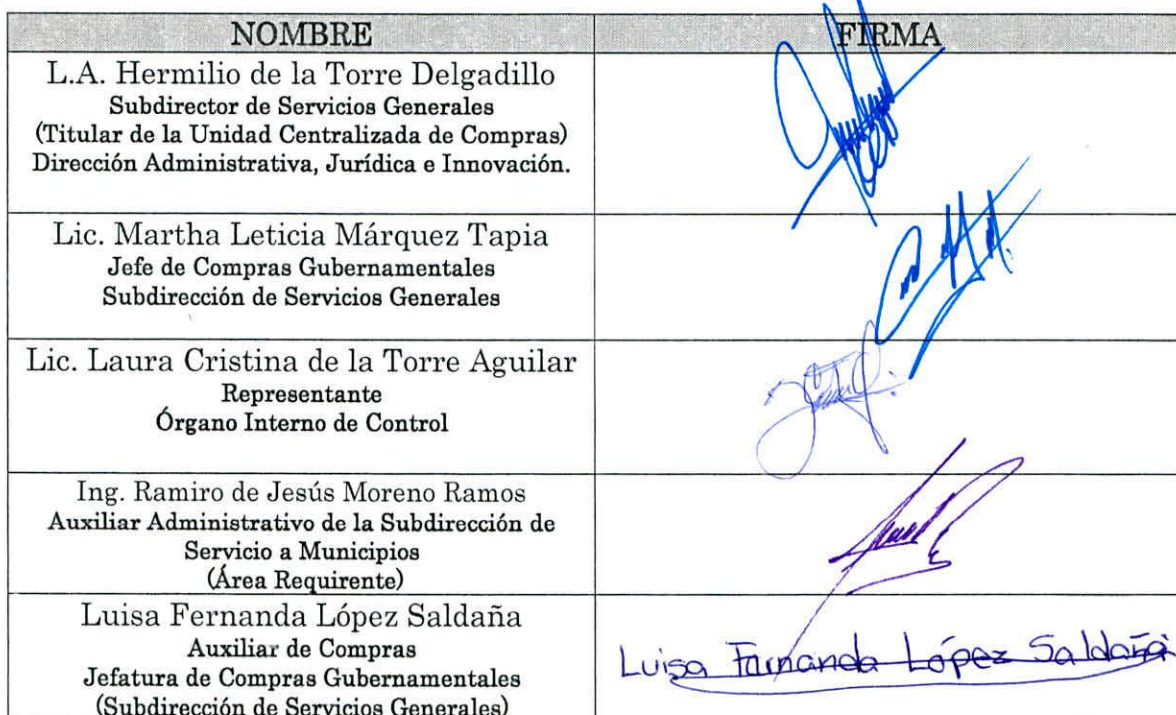 NOMBRE FIRMA
L.A. Hermilio de la Torre Delgadillo
Subdirector de Servicios Generales
(Titular de la Unidad Centralizada de Compras)
Dirección Administrativa, Jurídica e Innovación.
Lic. Martha Leticia Márquez Tapia
Jefe de Compras Gubernamentales
Subdirección de Servicios Generales
Lic. Laura Cristina de la Torre Aguilar
Representante
Órgano Interno de Control
Ing. Ramiro de Jesús Moreno Ramos
Auxiliar Administrativo de la Subdirección de
Servicio a Municipios
(Área Requirente)
Luisa Fernanda López Saldaña
Auxiliar de Compras
Jefatura de Compras Gubernamentales
(Subdirección de Servicios Generales)
Luisa Fernanda López Saldaña